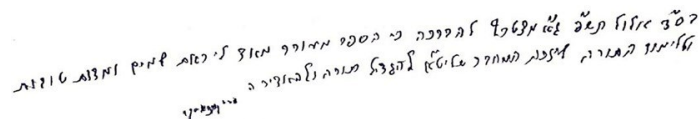 בס״ד אלול תש״פ גא״מ מצטרף להסכמה כי הספר מעורר מאוד ליראת שמים ומדות טובות
ולימוד התורה שיזכה המחבר שליט״א להגדיל תורה ולהאדירה